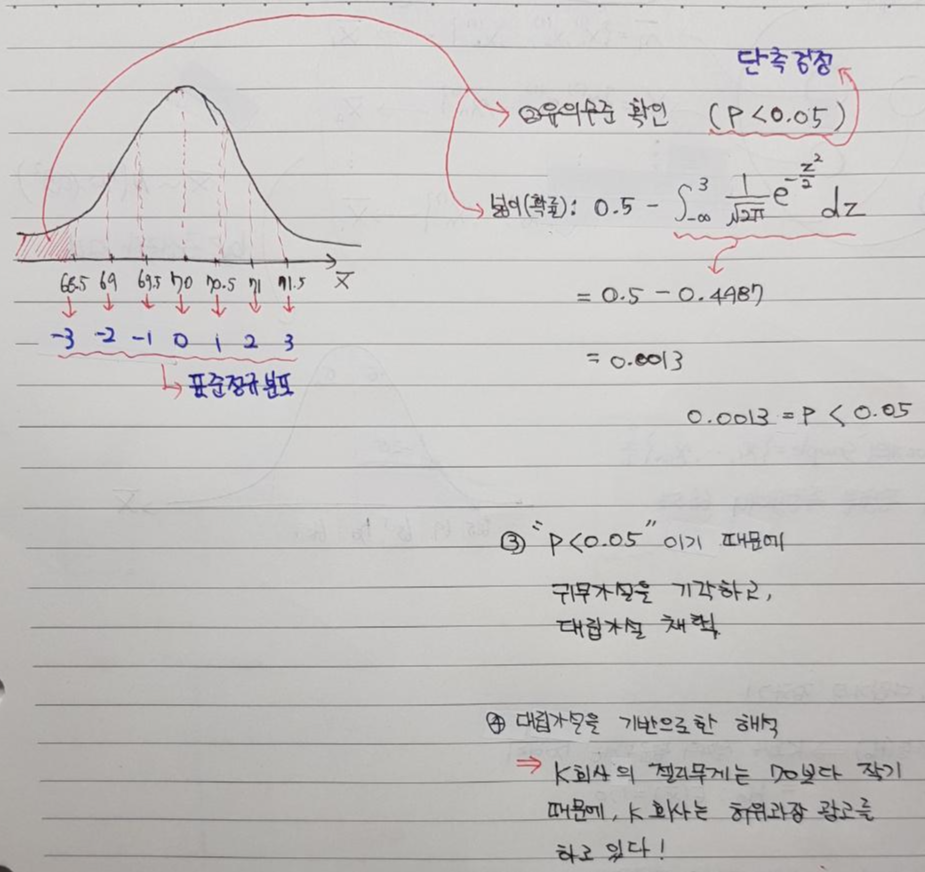 단측검정
②유의수준 확인 (P<0.05)
넓이(확률): 0.5 - ∫_{-∞}^{3} \frac{1}{\sqrt{2π}} e^{-\frac{z^2}{2}} dz
= 0.5 - 0.4987
= 0.0013
0.0013 = P < 0.05
68.5 69 69.5 70 70.5 71 71.5 X̄
-3 -2 -1 0 1 2 3
표준정규분포
③ "P<0.05" 이기 때문에
귀무가설을 기각하고,
대립가설 채택
④ 대립가설을 기반으로한 해석
⇒ K회사의 젤리무게는 70보다 작기
때문에, K 회사는 허위과장 광고를
하고 있다!